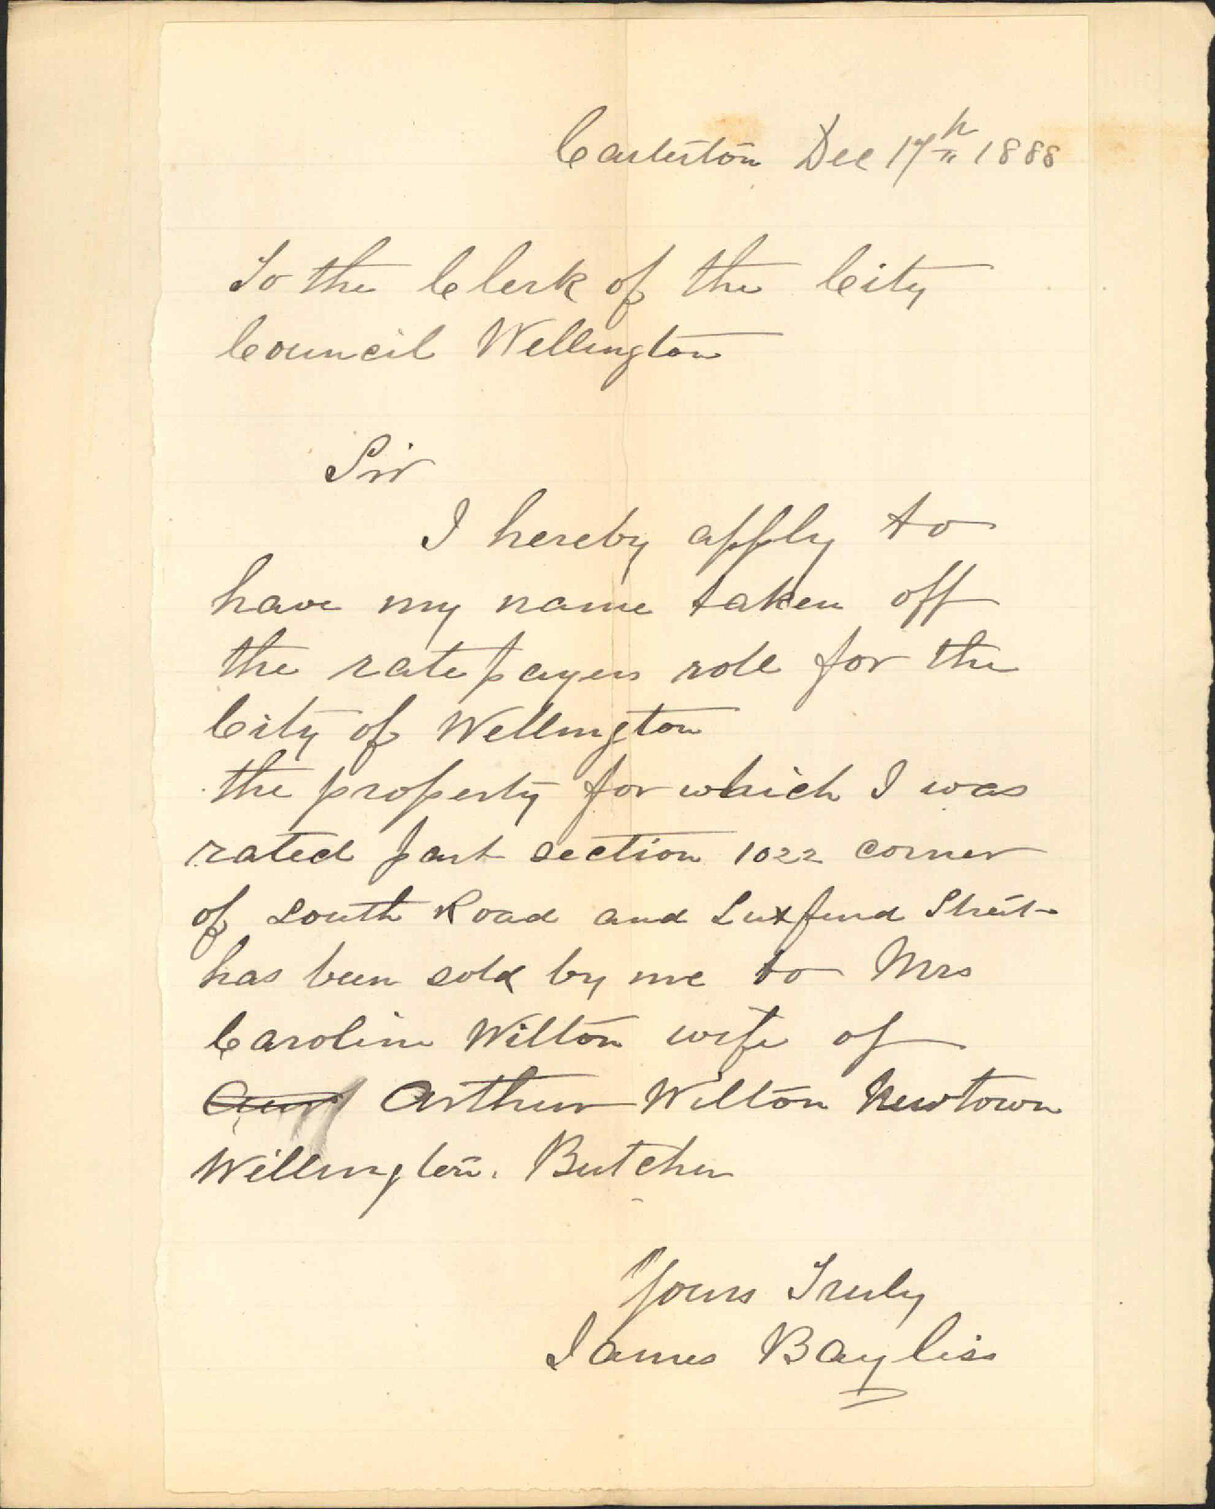 Carterton Dec 17th 1888
To the Clerk of the City
Council Wellington
Sir
I hereby apply to
have my name taken off
the ratepayers roll for the
City of Wellington
the property for which I was
rated part section 1022 corner
of South Road and Luxfurd Street
has been sold by me to Mrs
Caroline Wilton wife of
Arthur Wilton Newtown
Wellington. Butcher
Yours Truly
James Bayliss